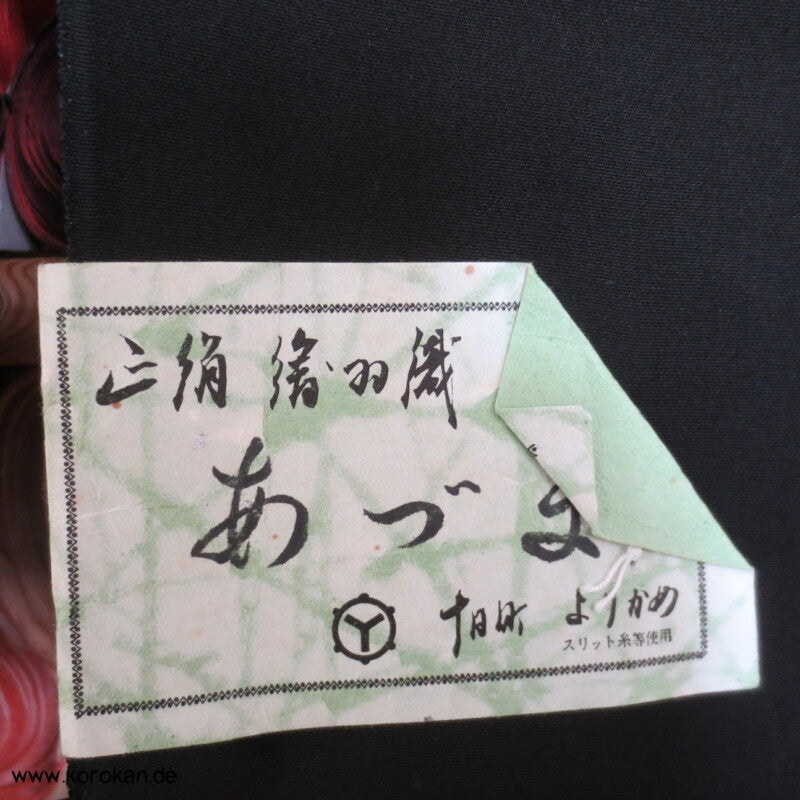 正絹 繪羽織
あづま
Y
十日町 よりかめ
スリット糸等使用
www.korokan.de